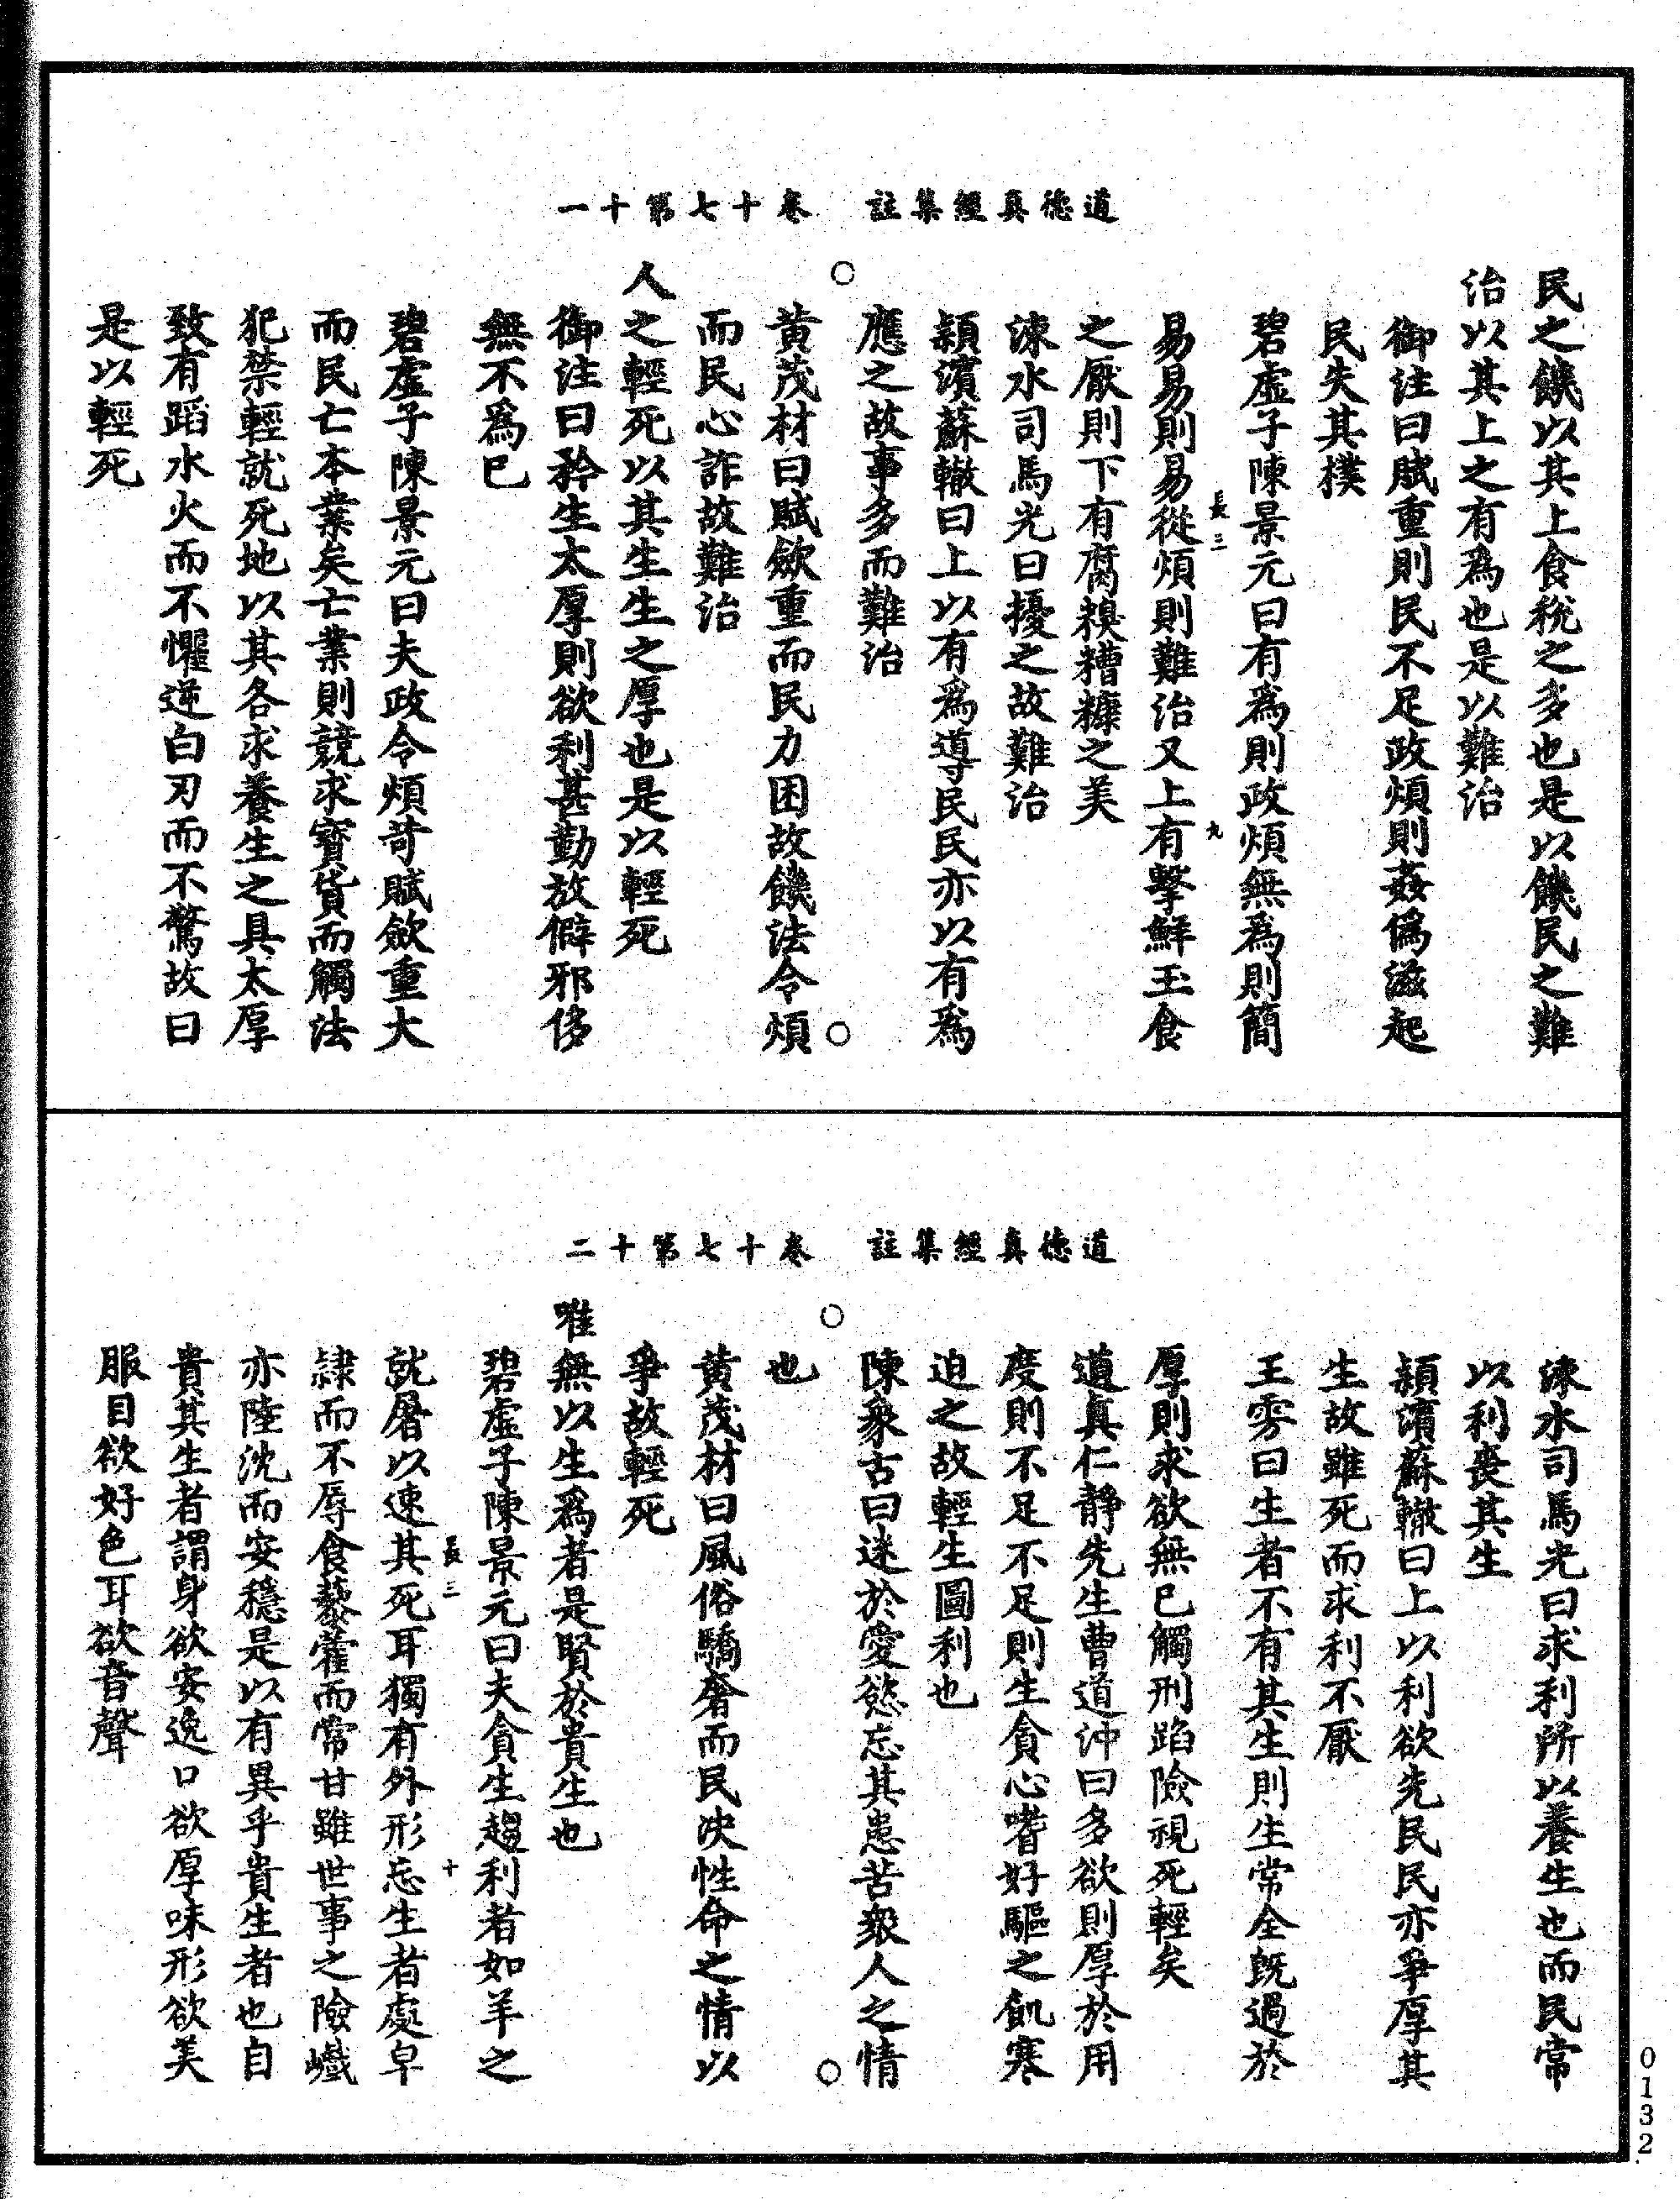 道德真經集註　卷十七第十一
民之饑以其上食稅之多也是以饑民之難
治以其上之有為也是以難治
御注曰賦重則民不足政煩則姦偽滋起
民失其樸
碧虛子陳景元曰有為則政煩無為則簡
長三　九
易易則易從煩則難治又上有擊鮮玉食
之厭則下有腐糗糟糠之美
涑水司馬光曰擾之故難治
潁濱蘇轍曰上以有為導民民亦以有為
應之故事多而難治
黃茂材曰賦斂重而民力困故饑法令煩
而民心詐故難治
人之輕死以其生生之厚也是以輕死
御注曰矜生太厚則欲利甚勤放僻邪侈
無不為已
碧虛子陳景元曰夫政令煩苛賦斂重大
而民亡本業矣亡業則競求寶貨而觸法
犯禁輕就死地以其各求養生之具太厚
致有蹈水火而不懼逆白刃而不驚故曰
是以輕死
道德真經集註　卷十七第十二
涑水司馬光曰求利所以養生也而民常
以利喪其生
潁濱蘇轍曰上以利欲先民民亦爭厚其
生故雖死而求利不厭
王雱曰生者不有其生則生常全既過於
厚則求欲無已觸刑蹈險視死輕矣
道真仁靜先生曹道沖曰多欲則厚於用
度則不足不足則生貪心嗜好驅之飢寒
迫之故輕生圖利也
陳象古曰迷於愛慾忘其患苦眾人之情
也
黃茂材曰風俗驕奢而民決性命之情以
爭故輕死
唯無以生為者是賢於貴生也
碧虛子陳景元曰夫貪生趨利者如羊之
長三　十
就屠以速其死耳獨有外形忘生者處皁
隸而不辱食藜藿而常甘雖世事之險巇
亦陸沈而安穩是以有異乎貴生者也自
貴其生者謂身欲安逸口欲厚味形欲美
服目欲好色耳欲音聲
0132